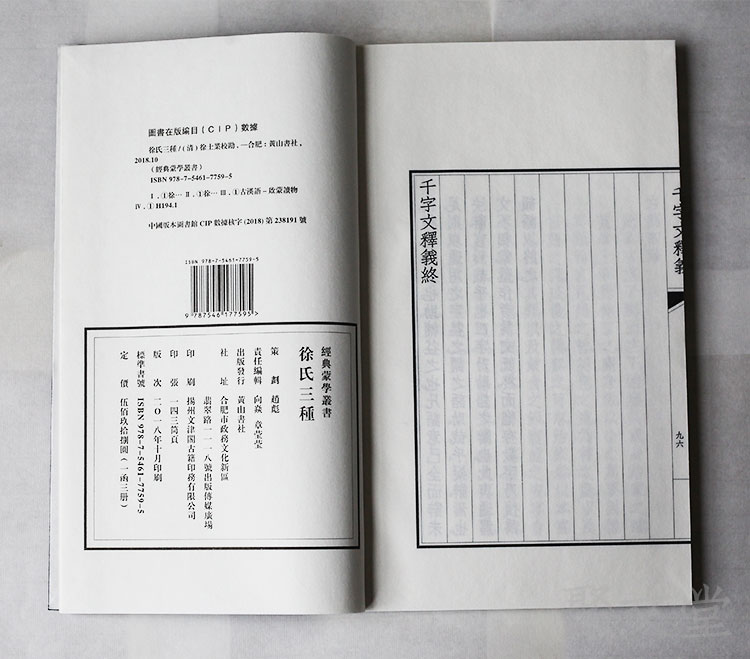 圖書在版編目(CIP)數據
徐氏三種/(清)徐士業校勘.—合肥:黃山書社,
2018.10
(經典蒙學叢書)
ISBN 978-7-5461-7759-5
Ⅰ.①徐… Ⅱ.①徐… Ⅲ.①古漢語-啟蒙讀物
Ⅳ.①H194.1
中國版本圖書館CIP數據核字(2018)第238191號
ISBN 978-7-5461-7759-5
9 787546 177595>
經典蒙學叢書
徐氏三種
策劃 趙彪
責任編輯 向焱 章瑩瑩
出版發行 黃山書社
社址 合肥市政務文化新區
翡翠路一一一八號出版傳媒廣場
印刷 揚州文津閣古籍印務有限公司
印張 一四三筒頁
版次 二〇一八年十月印刷
標準書號 ISBN 978-7-5461-7759-5
定價 伍佰玖拾捌圓(一函三冊)
千字文釋義
九六
千字文釋義終